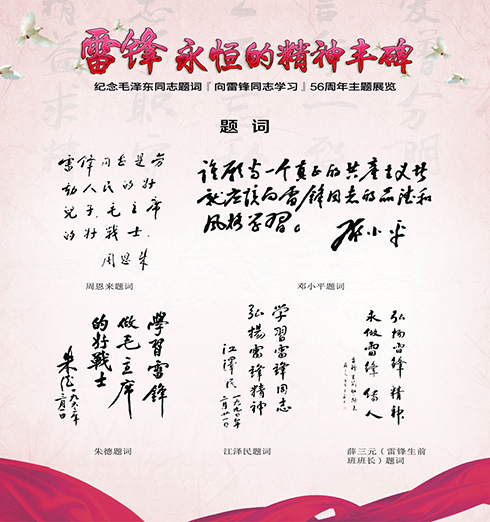 雷锋 永恒的精神丰碑
纪念毛泽东同志题词『向雷锋同志学习』56周年主题展览
题 词
雷锋同志是劳
动人民的好
儿子,毛主席
的好战士.
周恩来
周恩来题词
谁愿当一个真正的共产主义者
就应该向雷锋同志的品德和
风格学習。
邓小平
邓小平题词
學習雷锋
做毛主席
的好戰士
朱德
朱德题词
学習雷锋同志
弘揚雷锋精神
江泽民
江泽民题词
弘扬雷锋精神
永做雷锋传人
薛三元（雷锋生前
班班长）题词